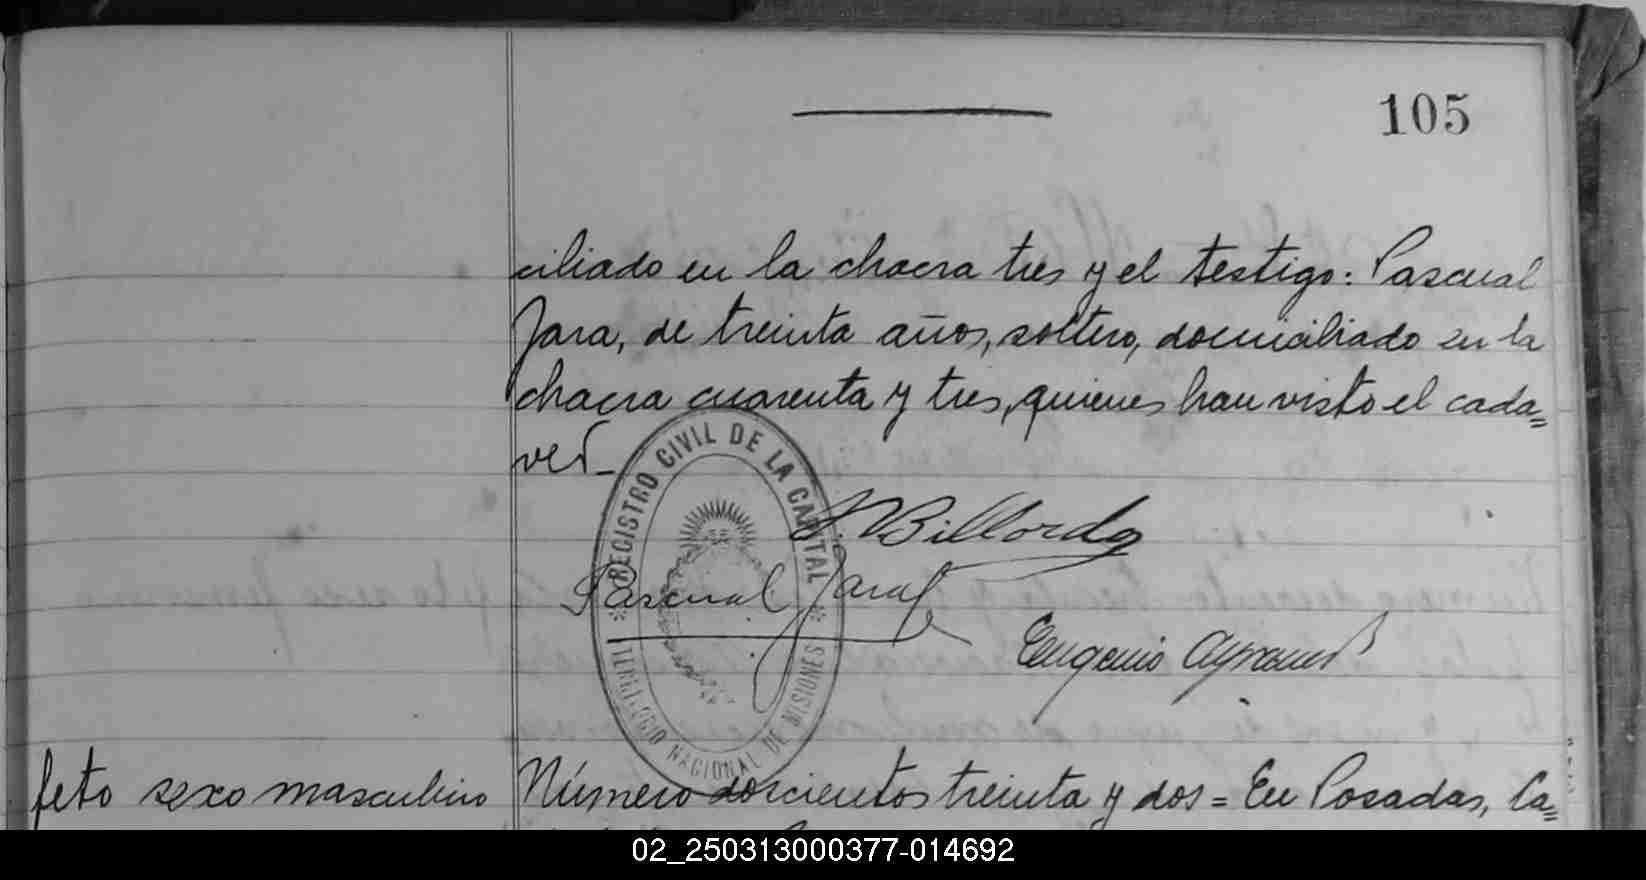 105
ciliado en la chacra tres y el testigo: Pascual
Jara, de treinta años, soltero, domiciliado en la
chacra cuarenta y tres, quienes han visto el cada=
ver_
REGISTRO CIVIL DE LA CAPITAL
TERRITORIO NACIONAL DE MISIONES
Billordo
Pascual Jara
Eugenio
feto sexo masculino
Número doscientos treinta y dos = En Posadas, Ca=
02_250313000377-014692